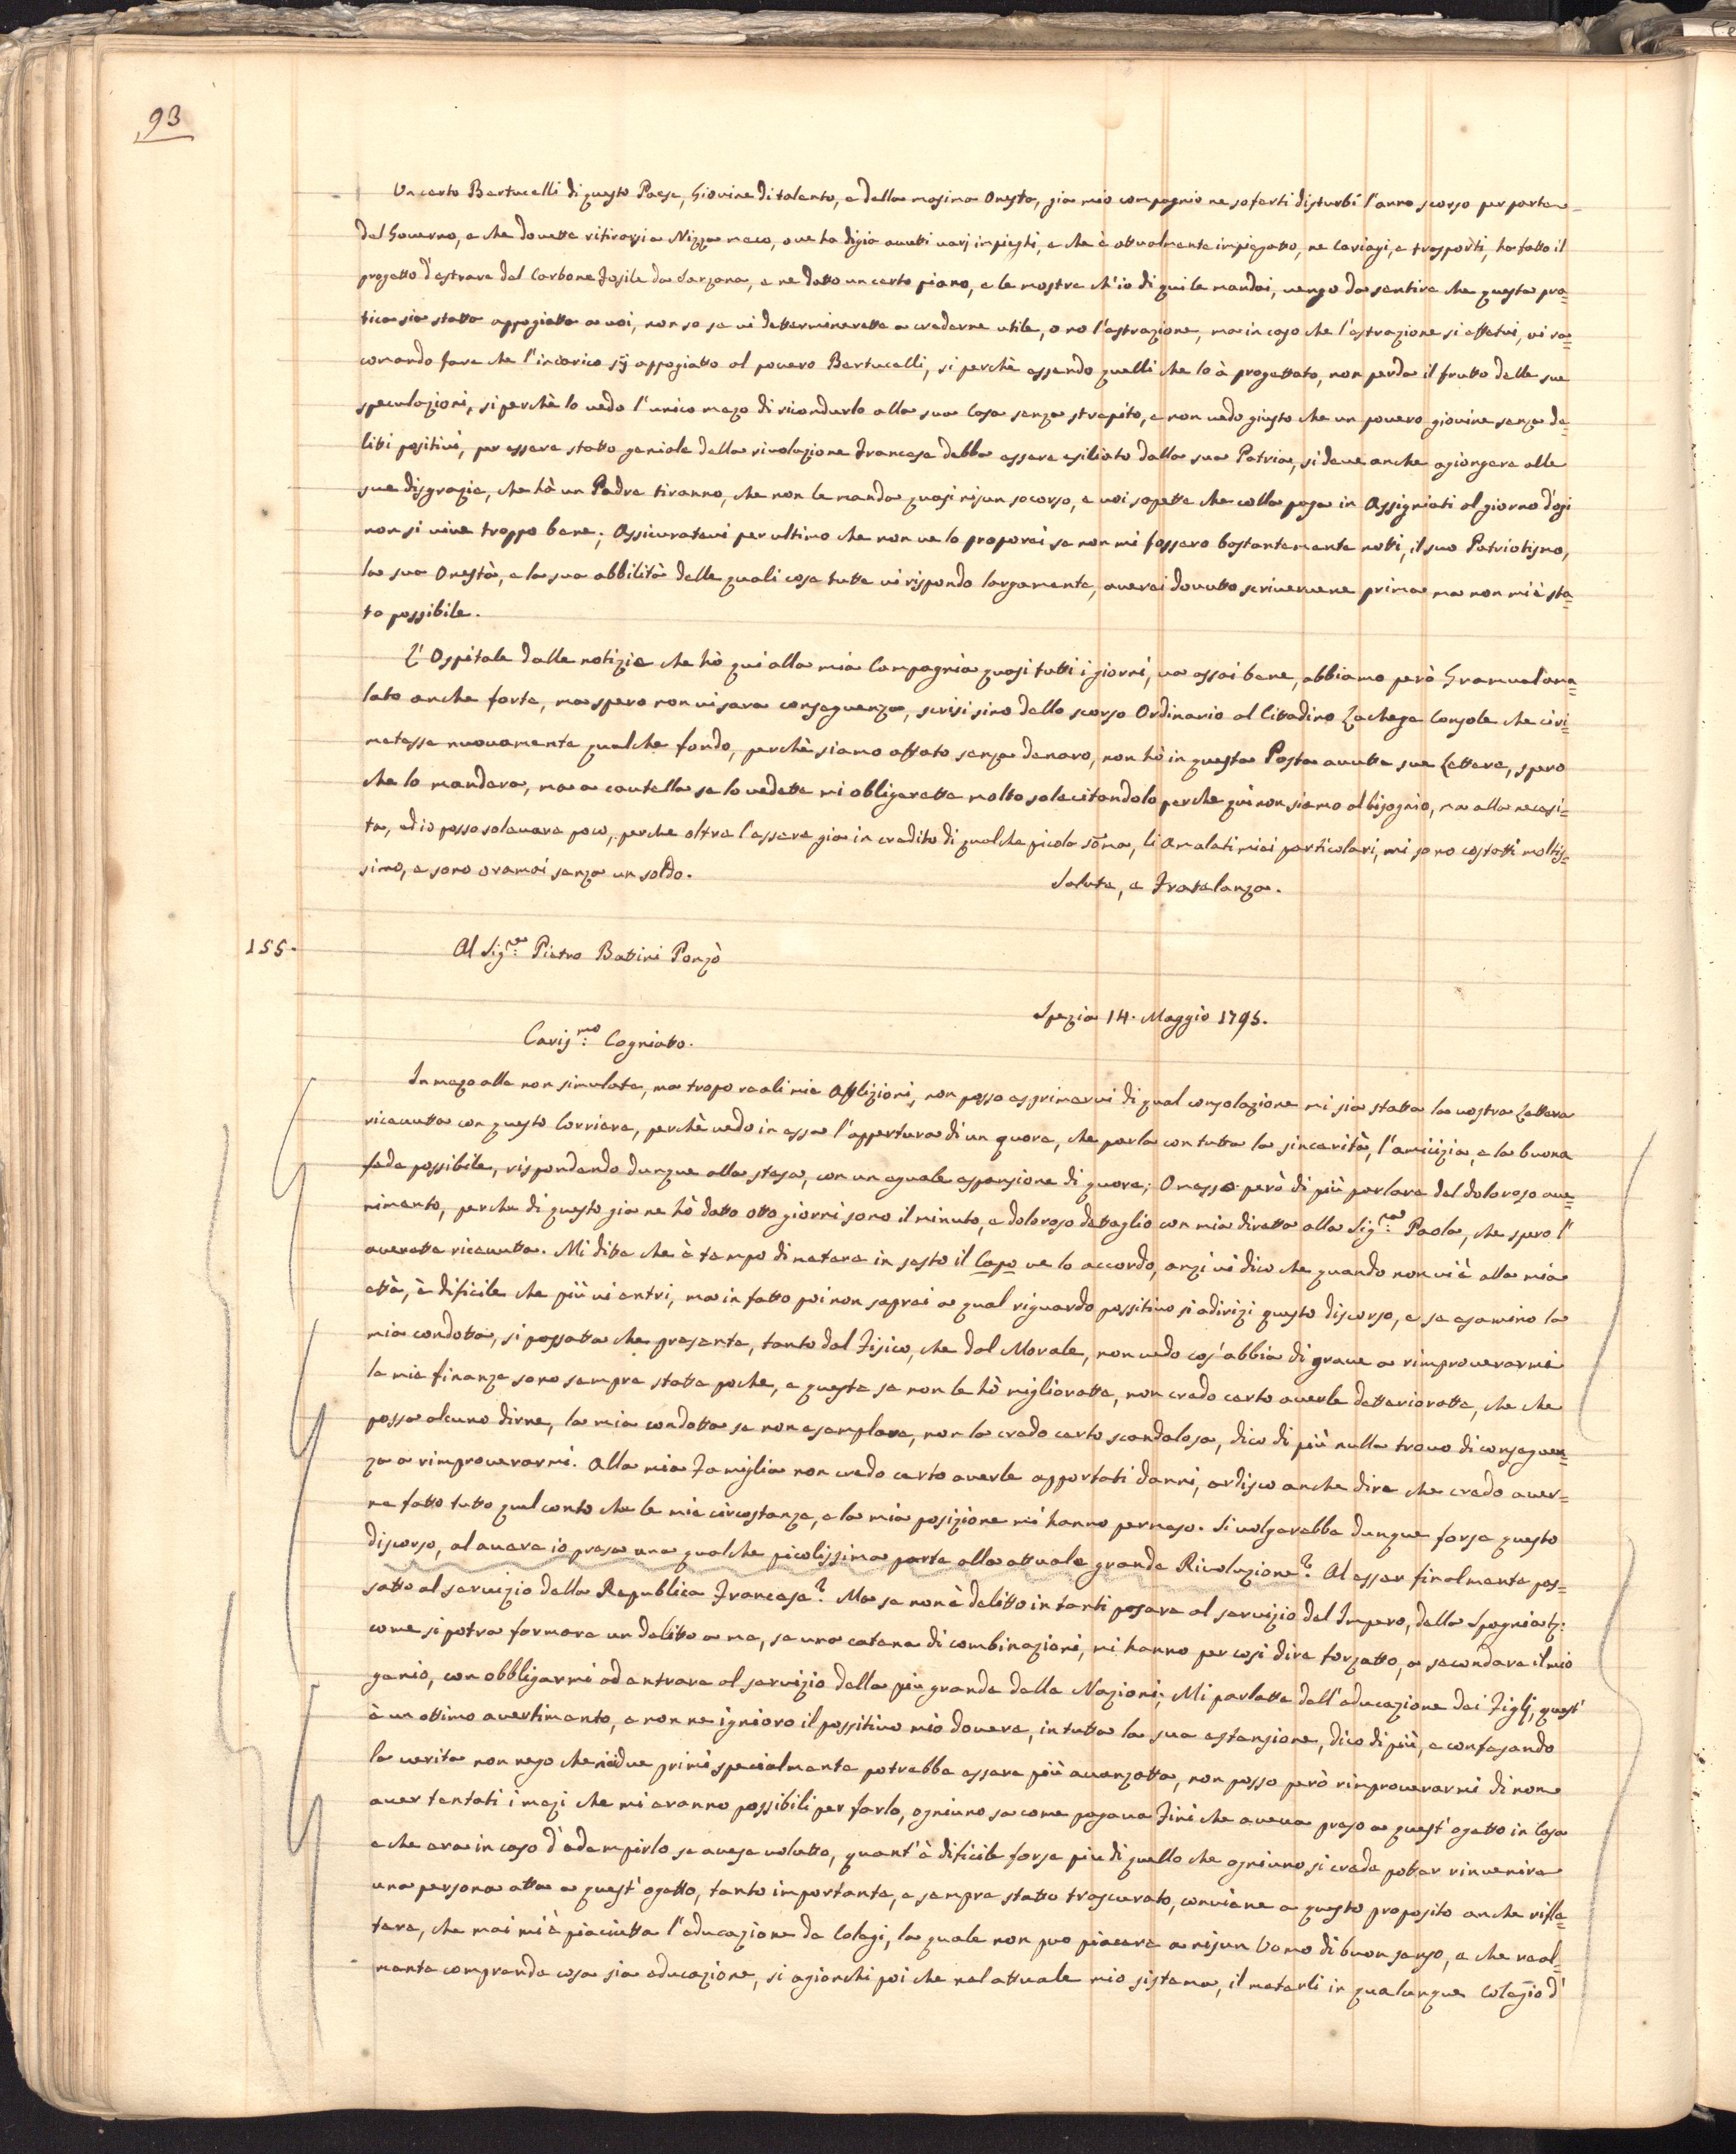 93
Un certo Bertucelli di questo Paese, Giovine di talento, e della masima Onesta, gia mio compagnio ne soferti disturbi l'anno scorso per parte
del Governo, e che dovette ritirarsi a Nizza meco, ove ha digia avutti varj impieghi, e che è attualmente impiegatto, ne Cariagi, e trasporti, ha fatto il
progetto d'estrare del Carbone Fosile da Sarzana, e ne datto un certo piano, e le mostre ch'io di qui le mandai, vengo da sentire che questa pra=
tica sia statta appogiatta a voi, non so se vi determinerette a crederne utile, o no l'estrazione, ma in caso che l'estrazione si effetui, vi ra=
comando fare che l'incarico sij appogiatto al povero Bertucelli, si perchè essendo quelli che lo à progettato, non perda il frutto delle sue
speculazioni, si perchè lo vedo l'unico mezo di ricondurlo alla sua Casa senza strepito, e non vedo giusto che un povero giovine senza de=
litti positivi, per essere statto geniale della rivoluzione Francese debba essere esiliato dalla sua Patria, si deve anche agiongere alle
sue disgrazie, che hà un Padre tiranno, che non le manda quasi nisun socorso, e voi sapette che colla paga in Assigniati al giorno d'ogi
non si vive troppo bene; Assicuratevi per ultimo che non ve lo proporei se non mi fossero bastantemente notti, il suo Patriotismo,
la sua Onestà, e la sua abbilità delle quali cose tutte vi rispondo largamente, averei dovutto scrivervene prima ma non mi è sta=
to possibile.
L'Ospitale dalle notizie che hò qui alla mia Campagnia quasi tutti i giorni, va assai bene, abbiamo però Gramual ama=
lato anche forte, ma spero non vi sara conseguenza, scrisi sino dallo scorso Ordinario al Cittadino Lachege Console che ci ri=
metesse nuovamente qualche fondo, perchè siamo affato senza denaro, non hò in questa Posta avutte sue Lettere, spero
che lo mandera, ma a cautella se lo vedette mi obligerette molto solecitandolo perche qui non siamo al bisognio, ma alla necesi=
ta, ed io posso solevare poco, perche oltre l'essere gia in credito di qualche picola soma, li Amalati miei particolari, mi sono costatti moltis=
simo, e sono oramai senza un soldo.
Salute, e Fratelanza.
155.
Al Sig.re Pietro Battini Ponzò
Spezia 14. Maggio 1795.
Caris.mo Cogniatto.
In mezo alle non simulate, ma tropo reali mie Afflizioni, non posso esprimervi di qual consolazione mi sia statta la vostra Lettera
ricevutta con questo Corriere, perchè vedo in essa l'appertura di un quore, che parla con tutta la sincerità, l'amicizia, e la buona
fede possibile, rispondendo dunque alla stesa, con un eguale espansione di quore; Omesso però di più parlare del doloroso ave=
nimento, perche di questo gia ne hò datto otto giorni sono il minuto, e doloroso dettaglio con mia diretta alla Sig.ra Paola, che spero l'
averette ricevutta. Mi dite che è tempo di metere in sesto il Capo ve lo accordo, anzi vi dico che quando non vi è alla mia
ettà, è dificile che più vi entri, ma in fatto poi non saprei a qual riguardo possitivo si adirizi questo discorso, e se esamino la
mia condotta, si passatta che presente, tanto dal Fisico, che dal Morale, non vedo cos'abbia di grave a rimproverarmi
le mie finanze sono sempre statte poche, e queste se non le hò migliorate, non credo certo averle detteriorate, che che
possa alcuno dirne, la mia condotta se non esemplare, non la credo certo scandalosa, dico di più nulla trovo di conseguen=
za a rimproverarmi. Alla mia Famiglia non credo certo averle apportati danni, ardisco anche dire che credo aver=
ne fatto tutto quel conto che le mie circostanze, e la mia posizione mi hanno permeso. Si volgerebbe dunque forse questo
discorso, al avere io presa una qualche picolissima parte alla attuale grande Rivoluzione? Al esser finalmente pas=
satto al servizio della Republica Francese? Ma se non è delitto in tanti pasare al servizio del Impero, della Spagnia &:
come si potra formare un delitto a me, se una catena di combinazioni, mi hanno per cosi dire forzatto, a secondare il mio
genio, con obbligarmi ad entrare al servizio della più grande delle Nazioni; Mi parlatte dell'educazione dei Figlj, quest'
è un ottimo avertimento, e non ne ignioro il possitivo mio dovere, in tutta la sua estensione, dico di più, e confesando
la verita non nego che nei due primi specialmente potrebbe essere più avanzatta, non posso però rimproverarmi di non
aver tentati i mezi che mi eranno possibili per farlo, ogniuno sa come pagava Fini che aveva preso a quest'ogetto in Casa
e che era in caso d'adempirlo se avese volutto, quant'è dificile forse piu di quello che ogniuno si crede potter rinvenire
una persona atta a quest'ogetto, tanto importante, e sempre statto trascurato, conviene a questo proposito anche rifle=
tere, che mai mi è piaciutta l'educazione de Colegi, la quale non puo piacere a nisun Uomo di buon senso, e che real=
mente comprenda cosa sia educazione, si agionchi poi che nel attuale mio sistema, il meterli in qualunque Colegio d'